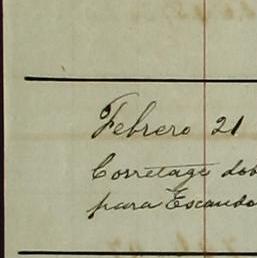 Febrero 21
Corretage dob
para Escando